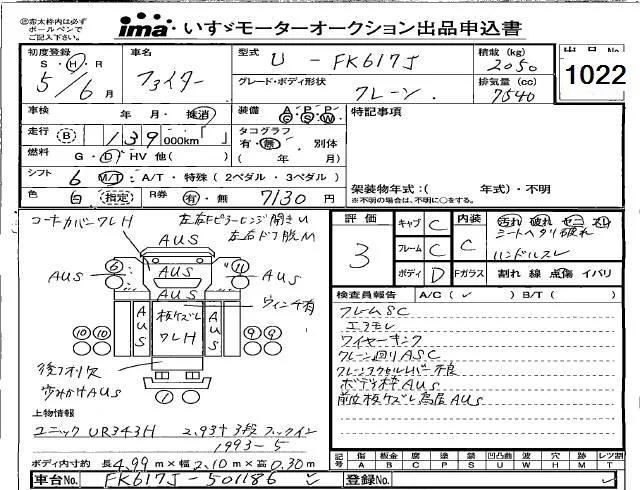 ㊟赤太枠内は必ず
ボールペンで
ご記入下さい。
ima いすゞモーターオークション出品申込書
初度登録 S・H・R 5/6月
車名 ファイター
型式 U - FK617J
積載 (kg) 2050
グレード・ボディ形状 クレーン
排気量 (cc) 7540
出品No. 1022
車検 年 月・抹消
装備 A/C P/S P/W
特記事項
走行 B 139 000km
タコグラフ 有・無 別体
( 年 月)
燃料 G・D・HV 他( )
シフト 6 M/T・A/T・特殊(2ペダル・3ペダル)
架装物年式:( 年式)・不明
※不明の場合は、不明に○をする。
色 白 指定 R券 有・無 7130 円
コーナーカバーワレH
左右Fピラーヒンジ開きU
左右ドア脱M
AUS
AUS AUS AUS
6 11
AUS AUS
ウィンチ有
板ケズレ
ワレH
10 10 9 9
後フタ欠
歩みかけAUS
1
評価 3
キャブ C
フレーム C
ボディ D
内装 C
汚れ 破れ セニ スレ
シートヘタリ破れ
ハンドルスレ
Fガラス 割れ 線 点傷 イバリ
検査員報告 A/C(✓) B/T( )
フレームSC
エアモレ
ワイヤーキンク
クレーン回りASC
クレーンアクセルレバー不良
ボディ枠AUS
前立板ケズレ鳥居AUS
上物情報
ユニック UR343H 2.93t 3段 フックイン
1993-5
ボディ内寸約 長4.99m×幅2.10m×高0.30m
記号 傷A 板金B 交換C 塗P 錆S 凹凸曲U 波W 穴H 跡M レツ割T
車台No. FK617J-501186 ✓
登録No. ✓